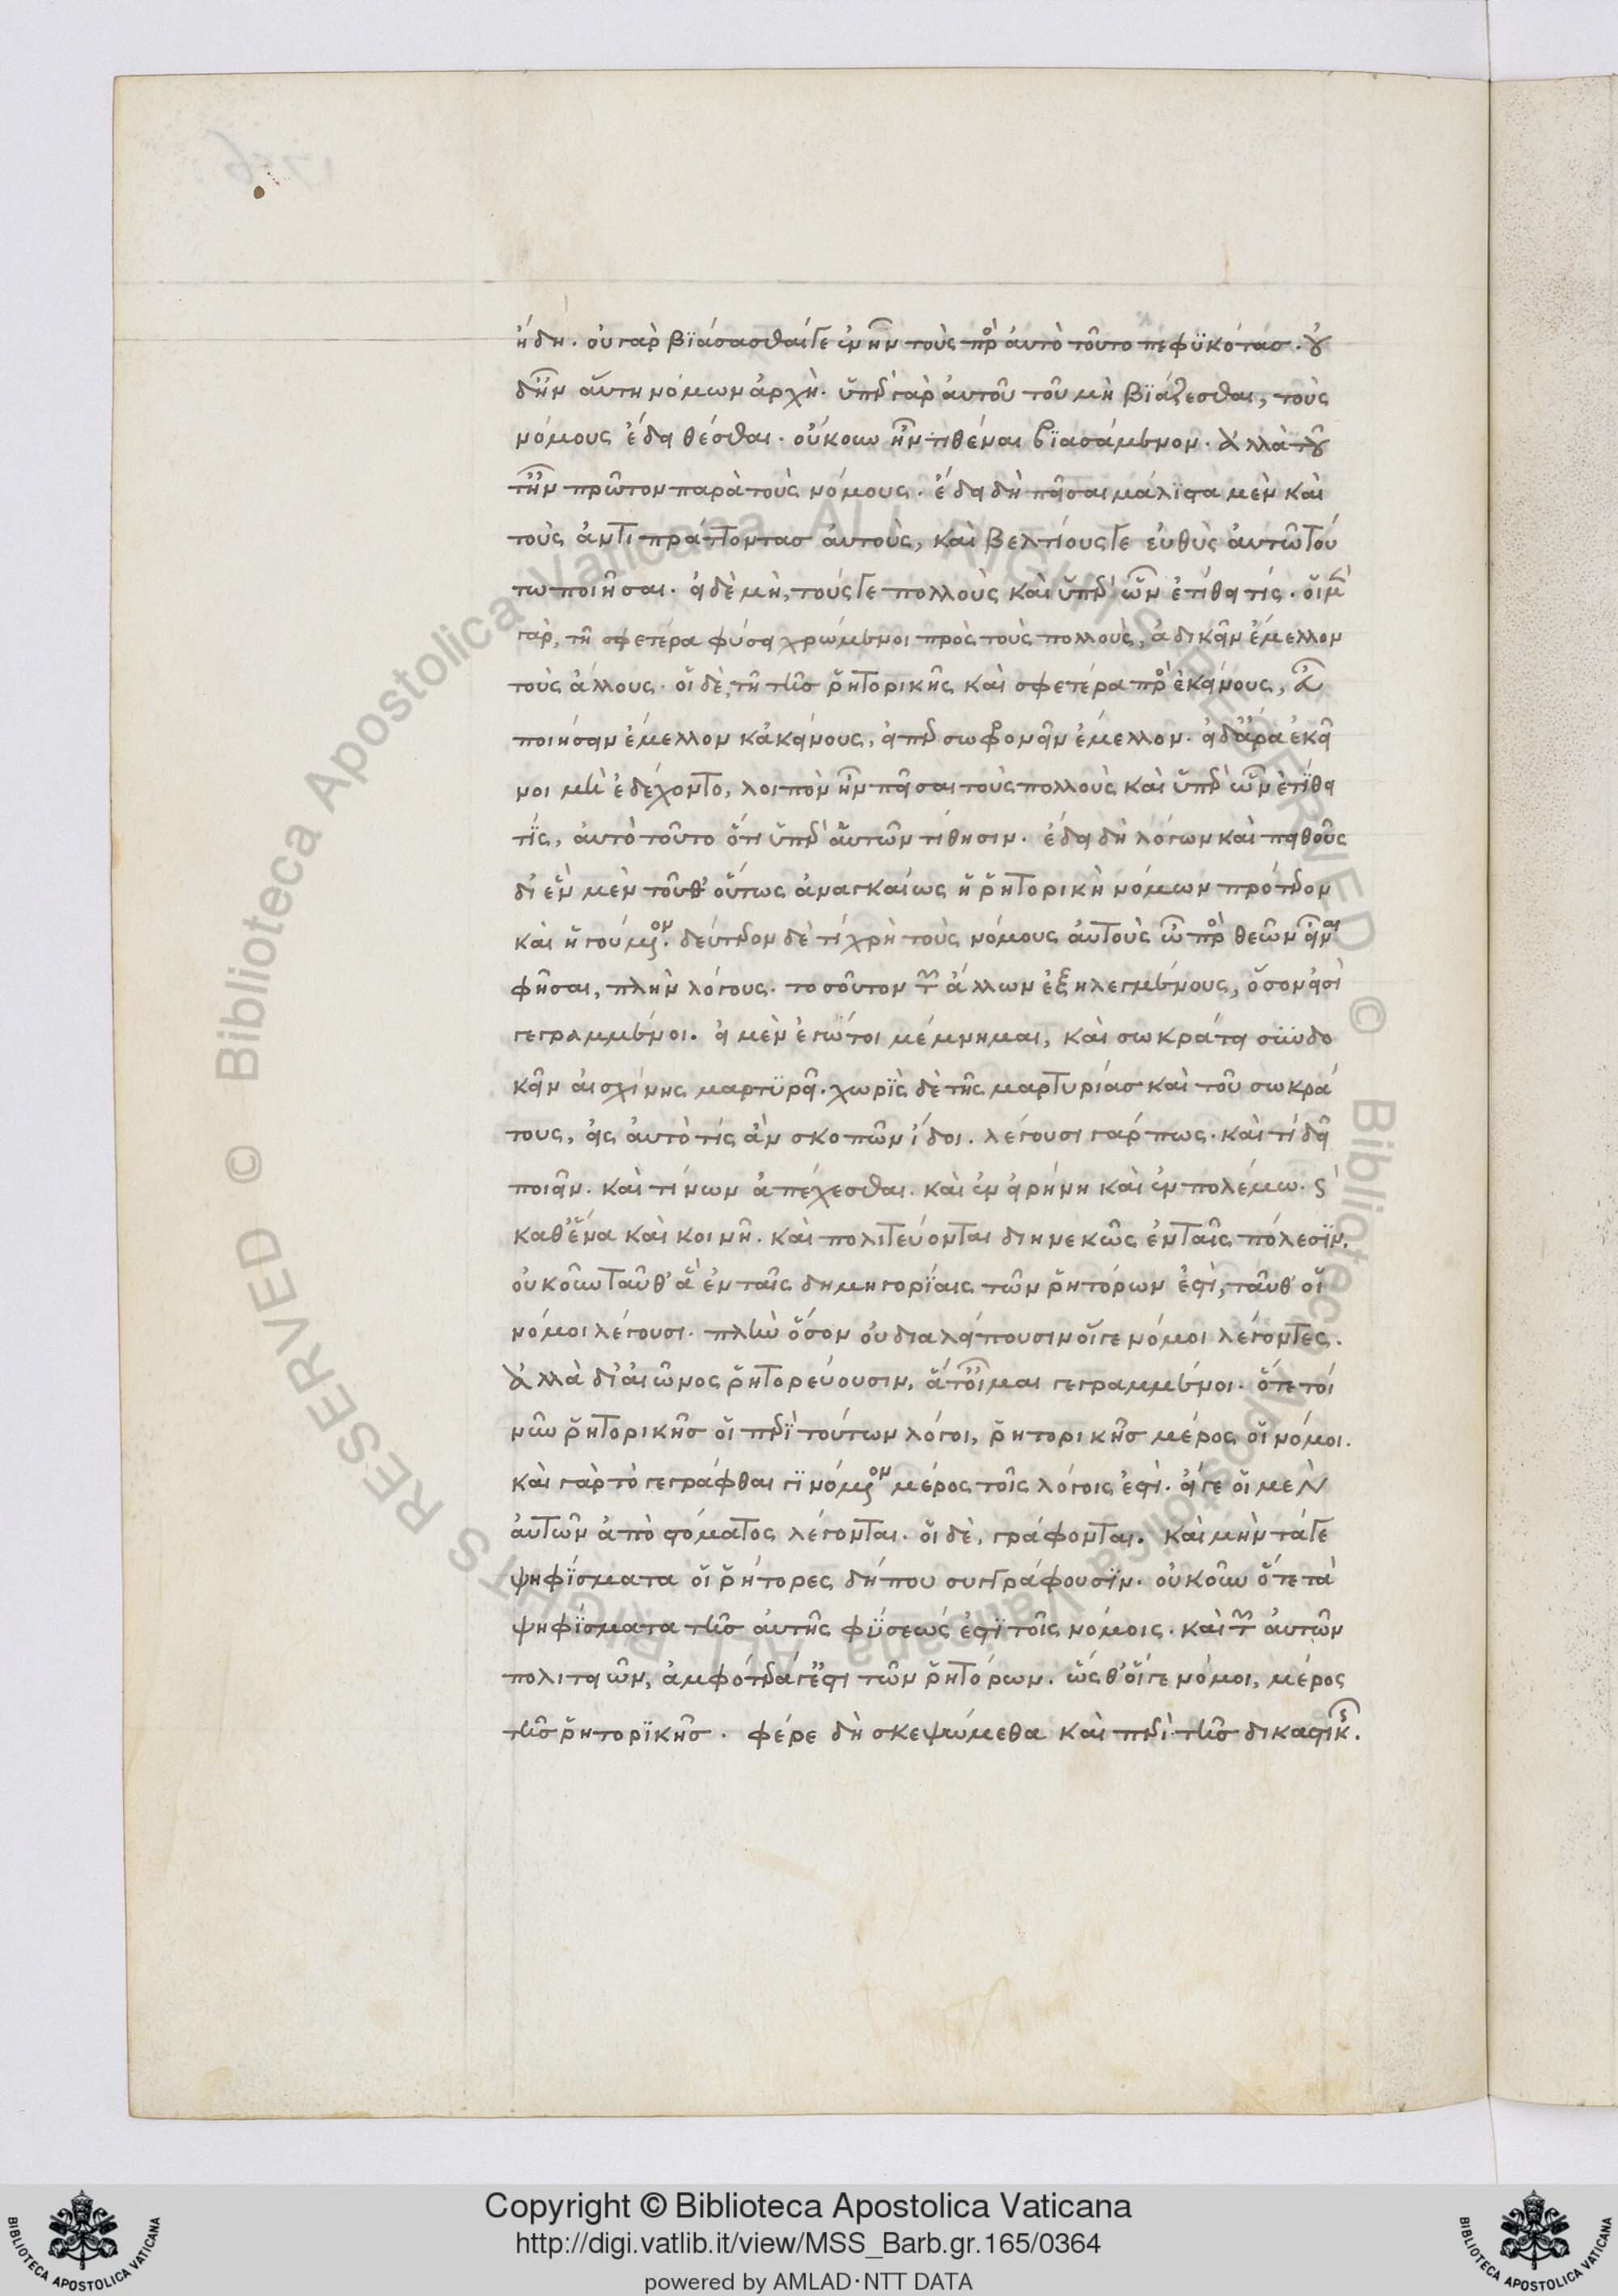 ἤδη. οὐ γὰρ βιάσασθαί γε ἐνῆν τοὺς πρὸς αὐτὸ τοῦτο πεφυκότας. οὐ
δ' ἦν αὕτη νόμων ἀρχή. ὑπὲρ γὰρ αὐτοῦ τοῦ μὴ βιάζεσθαι, τοὺς
νόμους ἔδει θέσθαι. οὔκουν ἦν τιθέναι βιασάμενον. ἀλλὰ τοῦ
τ' ἦν πρῶτον παρὰ τοὺς νόμους. ἔδει δὴ πεῖσαι μάλιστα μὲν καὶ
τοὺς ἀντιπράττοντας αὐτοὺς, καὶ βελτίους γε εὐθὺς αὐτῷ τού
τῳ ποιῆσαι. εἰ δὲ μὴ, τούς γε πολλοὺς καὶ ὑπὲρ ὧν ἐτίθει τις. οἱ μὲν
γὰρ, τῇ σφετέρα φύσει χρώμενοι πρὸς τοὺς πολλοὺς, ἀδικεῖν ἔμελλον
τοὺς ἄλλους. οἱ δὲ, τῇ τῆς ῥητορικῆς καὶ σφετέρα πρὸς ἐκείνους,
ποιήσειν ἔμελλον κἀκείνους, εἴπερ σωφρονεῖν ἔμελλον. εἰ δ' ἄρα ἐκεῖ
νοι μὴ ἐδέχοντο, λοιπὸν ἦν πεῖσαι τοὺς πολλοὺς καὶ ὑπὲρ ὧν ἐτίθει
τις, αὐτὸ τοῦτο ὅτι ὑπὲρ αὐτῶν τίθησιν. ἔδει δὴ λόγων καὶ πειθοῦς
δι' ἓν μὲν τοῦθ' οὕτως ἀναγκαίως ἡ ῥητορικὴ νόμων πρότερον
καὶ ἡγούμενον. δεύτερον δὲ τί χρὴ τοὺς νόμους αὐτοὺς ὦ πρὸς θεῶν εἶναι
φῆσαι, πλὴν λόγους. τοσοῦτον τῶν ἄλλων ἐξηλεγμένους, ὅσον εἰσὶ
γεγραμμένοι. εἰ μὲν ἐγώ τοι μέμνημαι, καὶ σωκράτει συνδο
κεῖν αἰσχίνης μαρτυρεῖ. χωρὶς δὲ τῆς μαρτυρίας καὶ τοῦ σωκρά
τους, εἰς αὐτό τις ἂν σκοπῶν ἴδοι. λέγουσι γάρ πως. καὶ τί δεῖ
ποιεῖν. καὶ τίνων ἀπέχεσθαι. καὶ ἐν εἰρήνῃ καὶ ἐν πολέμῳ. καὶ
καθ' ἕνα καὶ κοινῇ. καὶ πολιτεύονται διηνεκῶς ἐν ταῖς πόλεσιν.
οὐκοῦν ταῦθ' ἃ ἐν ταῖς δημηγορίαις τῶν ῥητόρων ἐστὶ, ταῦθ' οἱ
νόμοι λέγουσι. πλὴν ὅσον οὐ διαλείπουσιν οἵ γε νόμοι λέγοντες.
ἀλλὰ δι' αἰῶνος ῥητορεύουσιν, ἅτ' οἶμαι γεγραμμένοι. ὅτε τοί
νυν ῥητορικῆς οἱ περὶ τούτων λόγοι, ῥητορικῆς μέρος οἱ νόμοι.
καὶ γὰρ τὸ γεγράφθαι γινόμενον μέρος τοῖς λόγοις ἐστί. εἴ γε οἱ μὲν
αὐτῶν ἀπὸ στόματος λέγονται. οἱ δὲ, γράφονται. καὶ μὴν τά γε
ψηφίσματα οἱ ῥήτορες δήπου συγγράφουσιν. οὐκοῦν ὅτε τὰ
ψηφίσματα τῆς αὐτῆς φύσεώς ἐστι τοῖς νόμοις. καὶ τῶν αὐτῶν
πολιτειῶν, ἀμφότερά γ' ἐστι τῶν ῥητόρων. ὥσθ' οἵ γε νόμοι, μέρος
τῆς ῥητορικῆς. φέρε δὴ σκεψώμεθα καὶ περὶ τῆς δικαστικῆς.
Copyright © Biblioteca Apostolica Vaticana
http://digi.vatlib.it/view/MSS_Barb.gr.165/0364
powered by AMLAD·NTT DATA